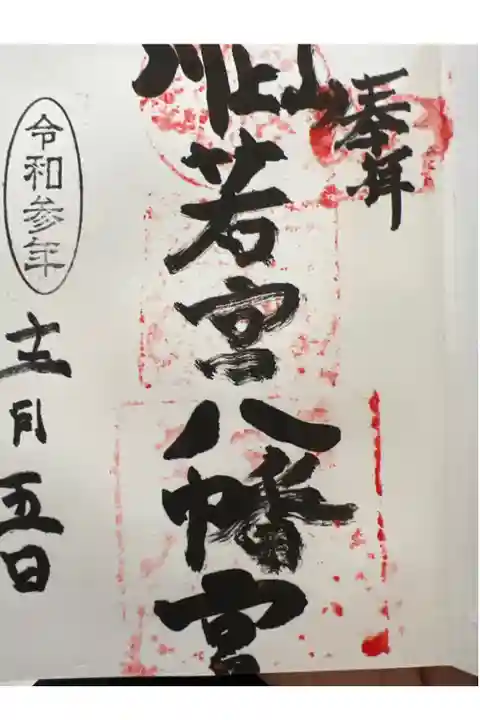 奉拝
川上山
若宮八幡宮
令和参年
十二月五日